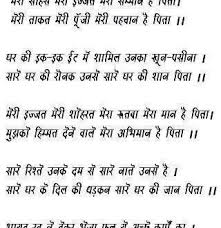 मेरा साहस मेरी इज्जत मेरा सम्मान है पिता।
मेरी ताकत मेरी पूँजी मेरी पहचान है पिता ।।
घर की इक-इक ईट में शामिल उनका खून-पसीना ।
सारे घर की रौनक उनसे सारे घर की शान पिता ।।
मेरी इज्जत मेरी शोहरत मेरा रूतबा मेरा मान है पिता।
मुझको हिम्मत देने वाले मेरा अभिमान है पिता ।।
सारे रिश्ते उनके दम से सारे नाते उनसे है ।
सारे घर के दिल की धड़कन सारे घर की जान पिता ।।